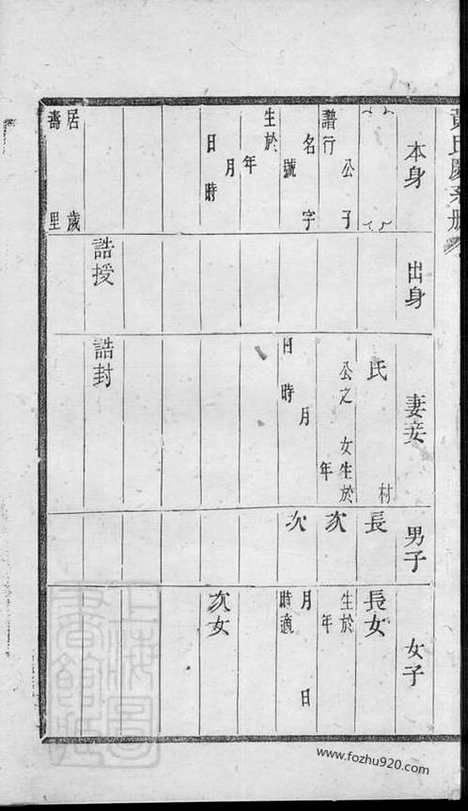 黄氏慶系册
本身
出身
妻妾
男子
女子
譜行 公 子
名 字
號
生於
年
月
日 時
居 里
壽 歲
誥授
氏 村
公之 女生於
年
月
日 時
誥封
長
次
次
長女
生於
年
月 日
時適
次女
www.fozhu920.com